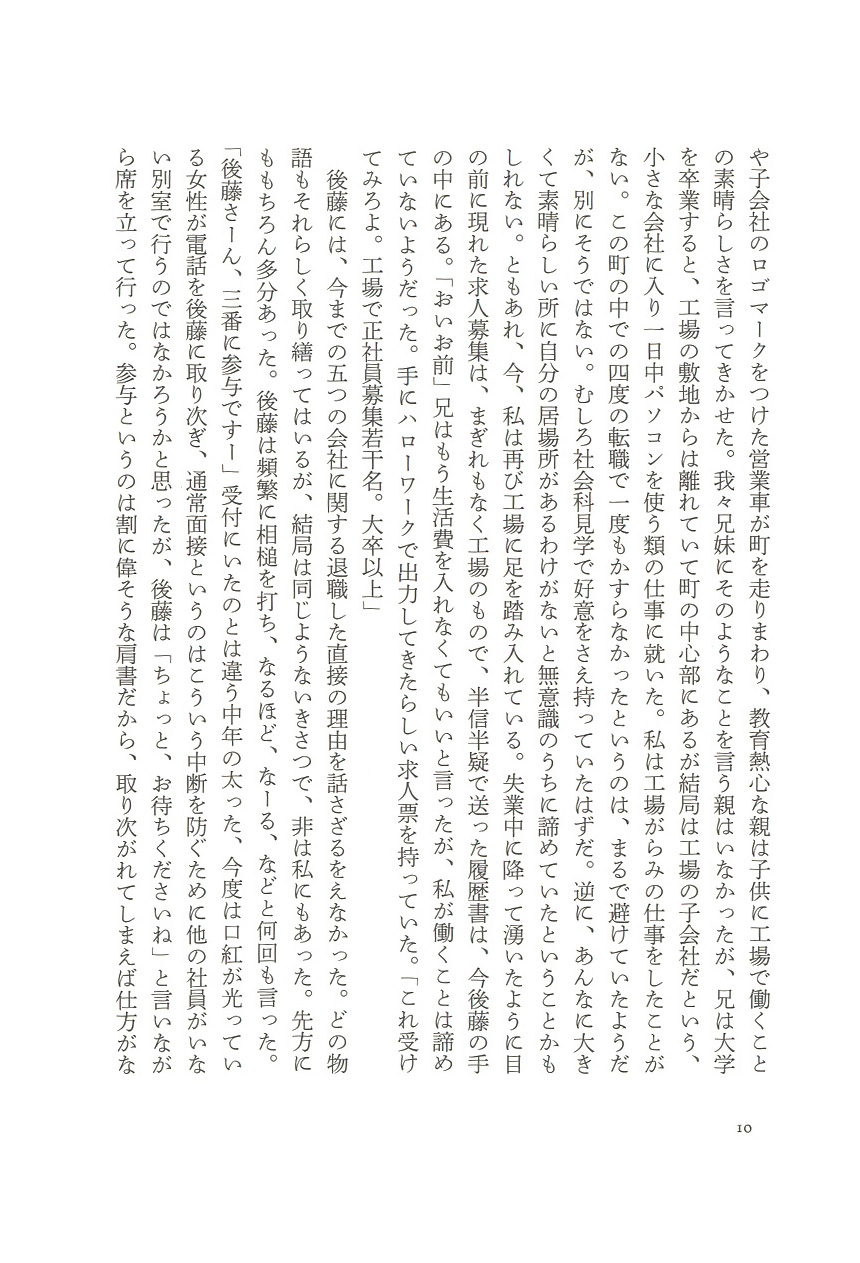 や子会社のロゴマークをつけた営業車が町を走りまわり、教育熱心な親は子供に工場で働くこと
の素晴らしさを言ってきかせた。我々兄妹にそのようなことを言う親はいなかったが、兄は大学
を卒業すると、工場の敷地からは離れていて町の中心部にあるが結局は工場の子会社だという、
小さな会社に入り一日中パソコンを使う類の仕事に就いた。私は工場がらみの仕事をしたことが
ない。この町の中での四度の転職で一度もかすらなかったというのは、まるで避けていたようだ
が、別にそうではない。むしろ社会科見学で好意をさえ持っていたはずだ。逆に、あんなに大き
くて素晴らしい所に自分の居場所があるわけがないと無意識のうちに諦めていたということかも
しれない。ともあれ、今、私は再び工場に足を踏み入れている。失業中に降って湧いたように目
の前に現れた求人募集は、まぎれもなく工場のもので、半信半疑で送った履歴書は、今後藤の手
の中にある。「おいお前」兄はもう生活費を入れなくてもいいと言ったが、私が働くことは諦め
ていないようだった。手にハローワークで出力してきたらしい求人票を持っていた。「これ受け
てみろよ。工場で正社員募集若干名。大卒以上」
　後藤には、今までの五つの会社に関する退職した直接の理由を話さざるをえなかった。どの物
語もそれらしく取り繕ってはいるが、結局は同じようないきさつで、非は私にもあった。先方に
ももちろん多分あった。後藤は頻繁に相槌を打ち、なるほど、なーる、などと何回も言った。
「後藤さーん、三番に参与ですー」受付にいたのとは違う中年の太った、今度は口紅が光ってい
る女性が電話を後藤に取り次ぎ、通常面接というのはこういう中断を防ぐために他の社員がいな
い別室で行うのではなかろうかと思ったが、後藤は「ちょっと、お待ちくださいね」と言いなが
ら席を立って行った。参与というのは割に偉そうな肩書だから、取り次がれてしまえば仕方がな
10